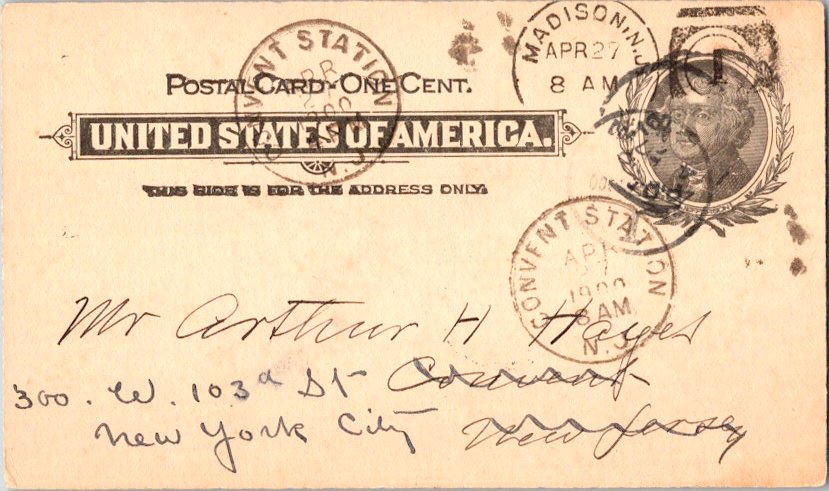 MADISON, N.J.
APR 27
8 AM
1
CONVENT STATION
APR
1900
8 AM
N.J.
POSTAL CARD - ONE CENT.
UNITED STATES OF AMERICA.
THIS SIDE IS FOR THE ADDRESS ONLY.
CONVENT STATION
AP
1900
8 AM
N.J.
Mr Arthur H Hayes
300. W. 103d St Convent
New York City New Jersey